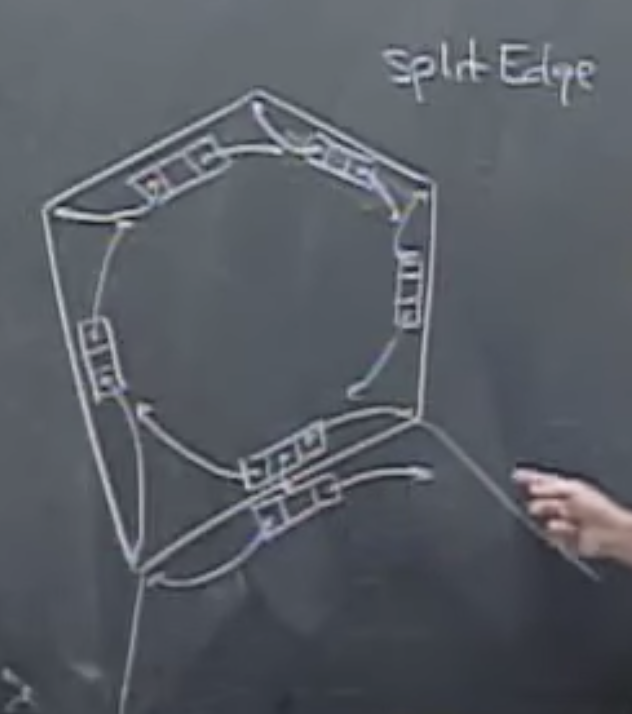 split Edge